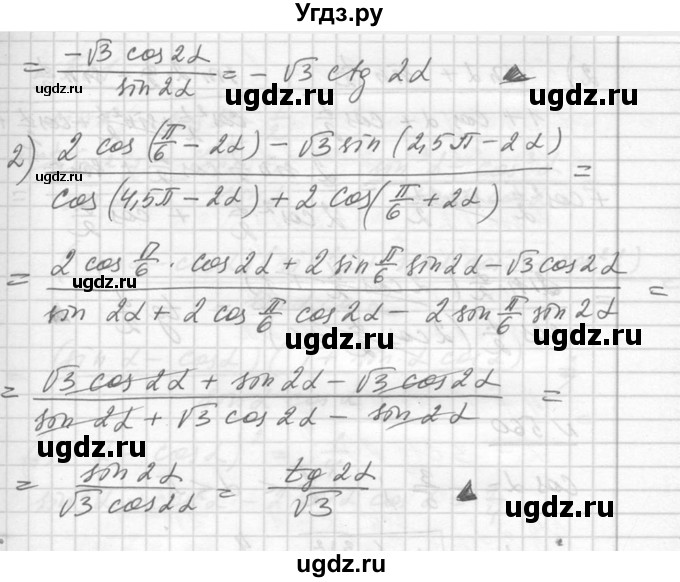 Угдз.ру
= -√3 cos 2α / sin 2α = - √3 ctg 2α ▲
ugdz.ru ugdz.ru ugdz.ru
2) 2 cos (π/6 - 2α) - √3 sin (2,5π - 2α) / cos (4,5π - 2α) + 2 cos (π/6 + 2α) =
ugdz.ru ugdz.ru
= 2 cos π/6 · cos 2α + 2 sin π/6 sin 2α - √3 cos 2α / sin 2α + 2 cos π/6 cos 2α - 2 sin π/6 sin 2α =
ugdz.ru ugdz.ru ugdz.ru
= √3 cos 2α + sin 2α - √3 cos 2α / sin 2α + √3 cos 2α - sin 2α =
ugdz.ru ugdz.ru
= sin 2α / √3 cos 2α = tg 2α / √3 ▲
ugdz.ru ugdz.ru ugdz.ru
ugdz.ru ugdz.ru